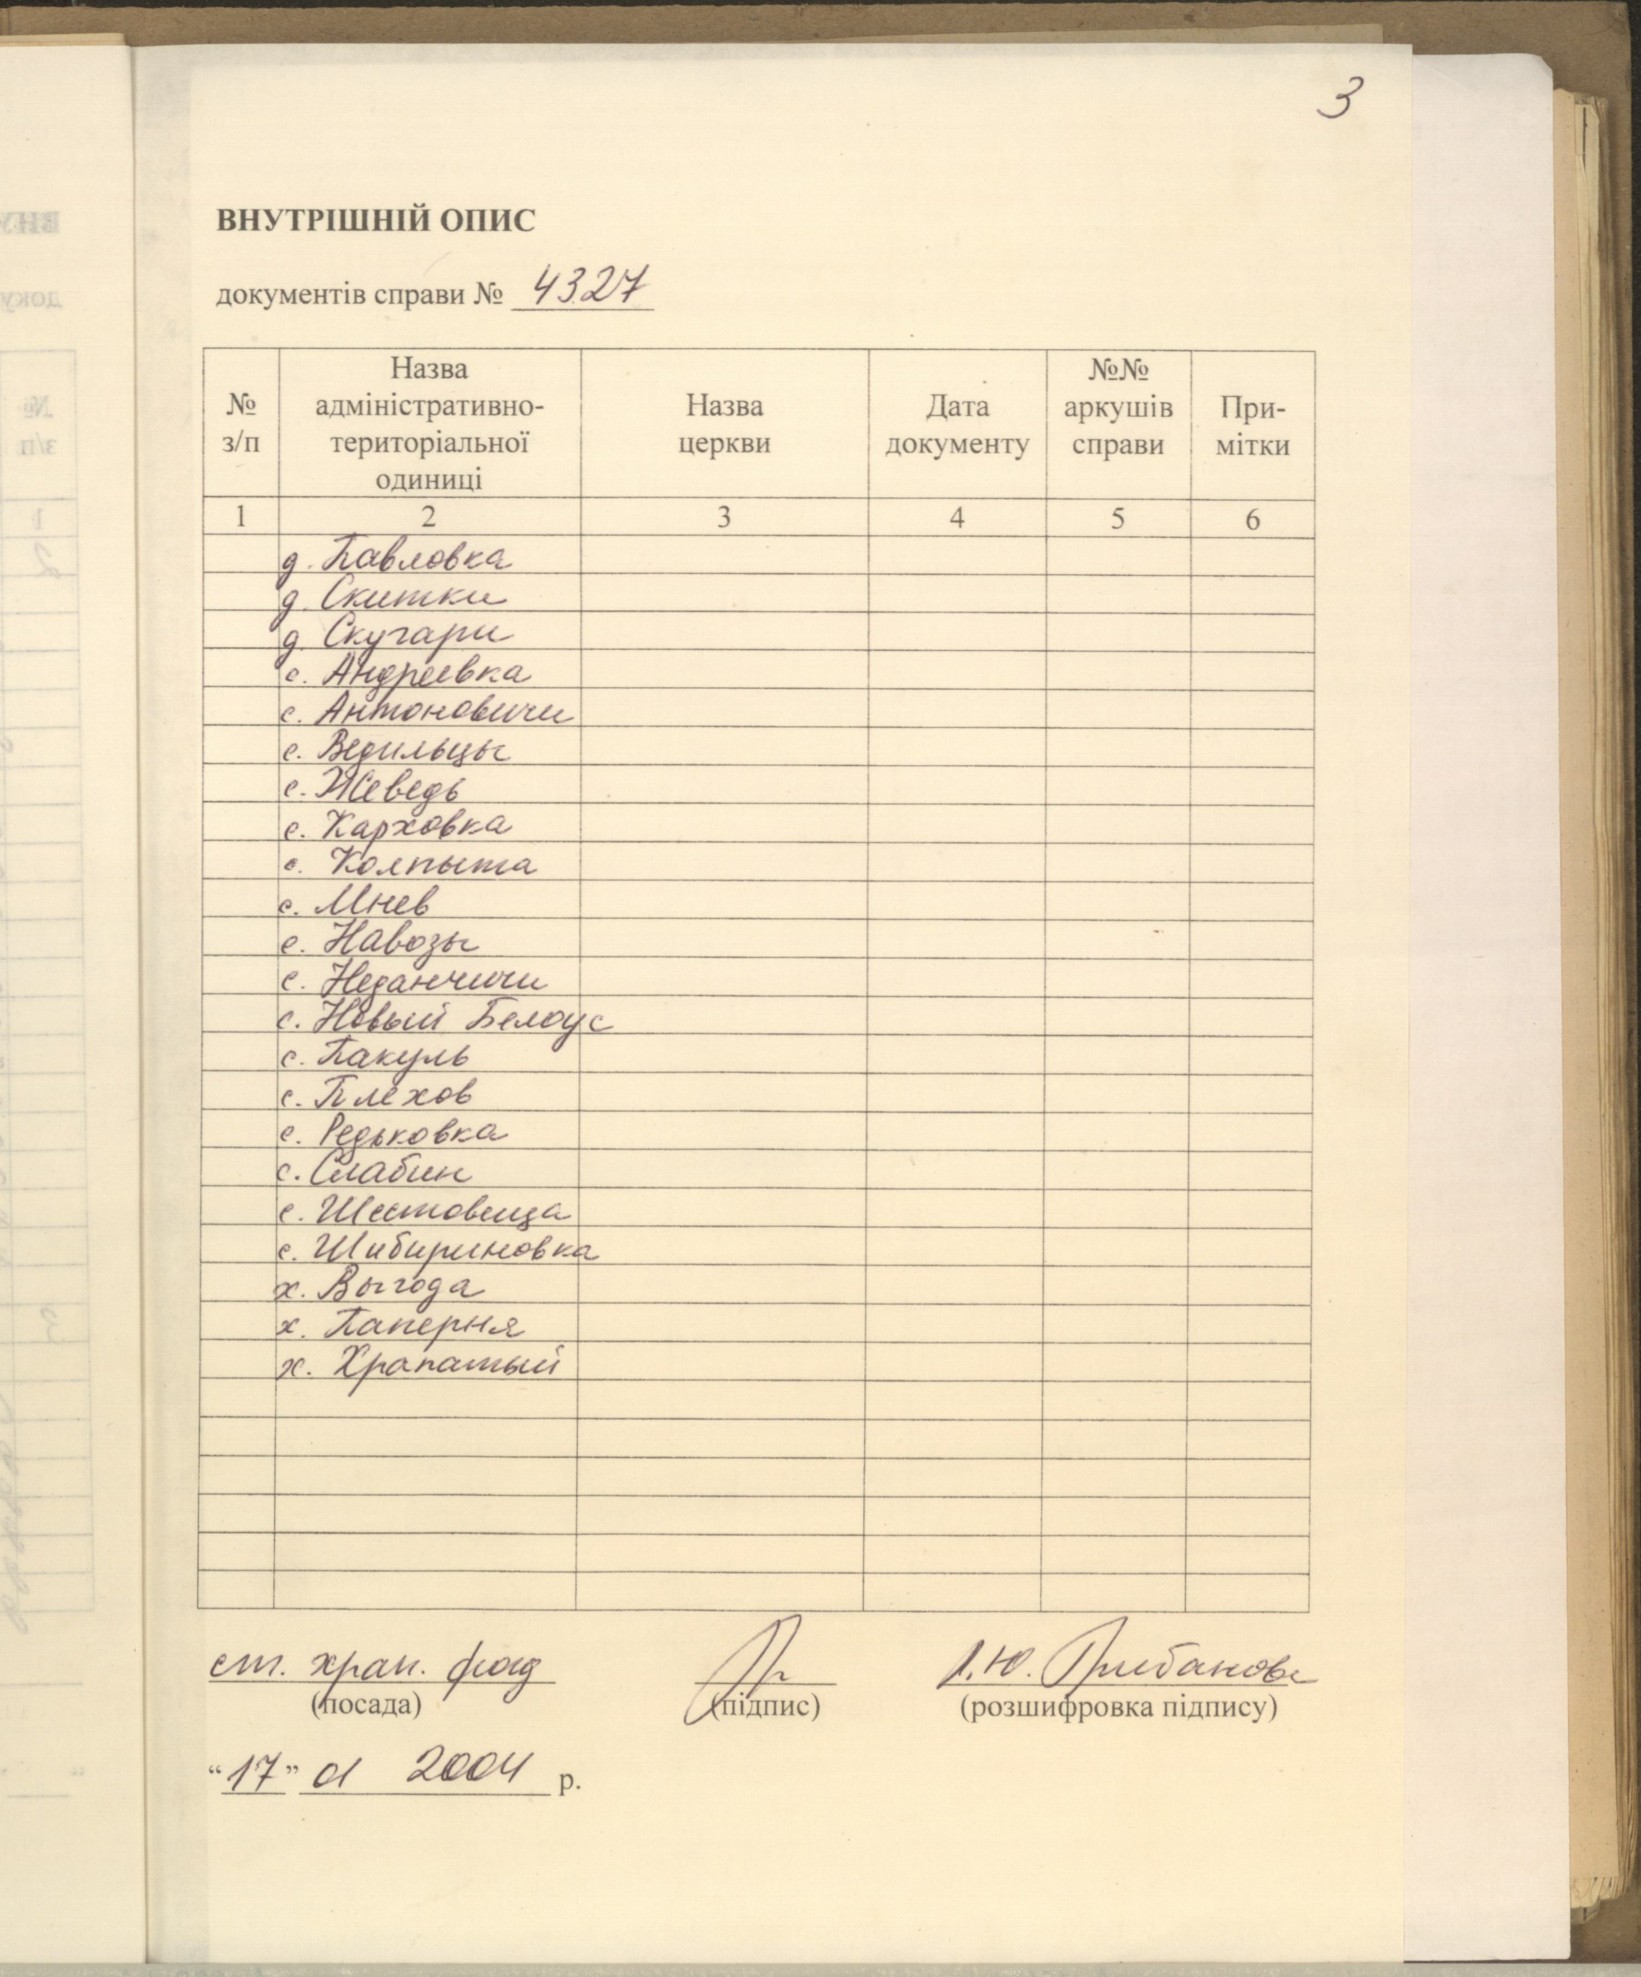 3
ВНУТРІШНІЙ ОПИС
документів справи № 4327
№ з/п
Назва адміністративно-територіальної одиниці
Назва церкви
Дата документу
№№ аркушів справи
При-мітки
1 2 3 4 5 6
д. Павловка
д. Скитки
д. Скугари
с. Андреевка
с. Антоновичи
с. Ведильцы
с. Жеведь
с. Карховка
с. Колпыта
с. Мнев
с. Навозы
с. Неданчичи
с. Новый Белоус
с. Пакуль
с. Плехов
с. Редьковка
с. Слабин
с. Шестовица
с. Шибириновка
х. Выгода
х. Паперня
х. Храпатый
ст. хран. фонд
(посада) (підпис) (розшифровка підпису)
"17" 01 2004 р.